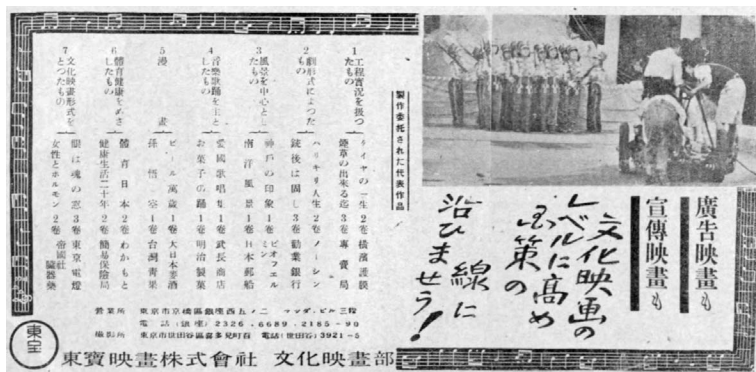 廣告映畫も
宣傳映畫も
文化映画の
レベルに高め
国策の
線に
沿ひませう!
製作委託された代表作品
1 工程實況を扱つたもの
タイヤの一生 2卷 橫濱護謨
煙草の出来る迄 3卷 專賣局
2 劇形式によつたもの
ハリキリ人生 2卷 ノーシン
銃後は固し 3卷 勸業銀行
3 風景を中心としたもの
神戸の印象 1卷 ビオフエルミン
南洋風景 1卷 日本郵船
4 音樂歌踊を主としたもの
愛國歌唱集 1卷 武長商店
お菓子の踊 1卷 明治製菓
5 漫畫
ビール萬歳 1卷 大日本麥酒
孫悟空 1卷 台灣青果
6 體育健康をめざしたもの
體育日本 2卷 わかもと
健康生活二十年 2卷 簡易保險局
7 文化映畫形式をとつたもの
眼は魂の窓 3卷 東京電燈
女性とホルモン 2卷 帝國社臓器藥
營業所 東京市京橋區銀座西五ノ二 マツダ、ビル三階
電話(銀座)2326.6689.2185-90
撮影所 東京市世田谷區喜多見町百 電話(世田谷)3921-5
東宝
東寶映畫株式會社 文化映畫部